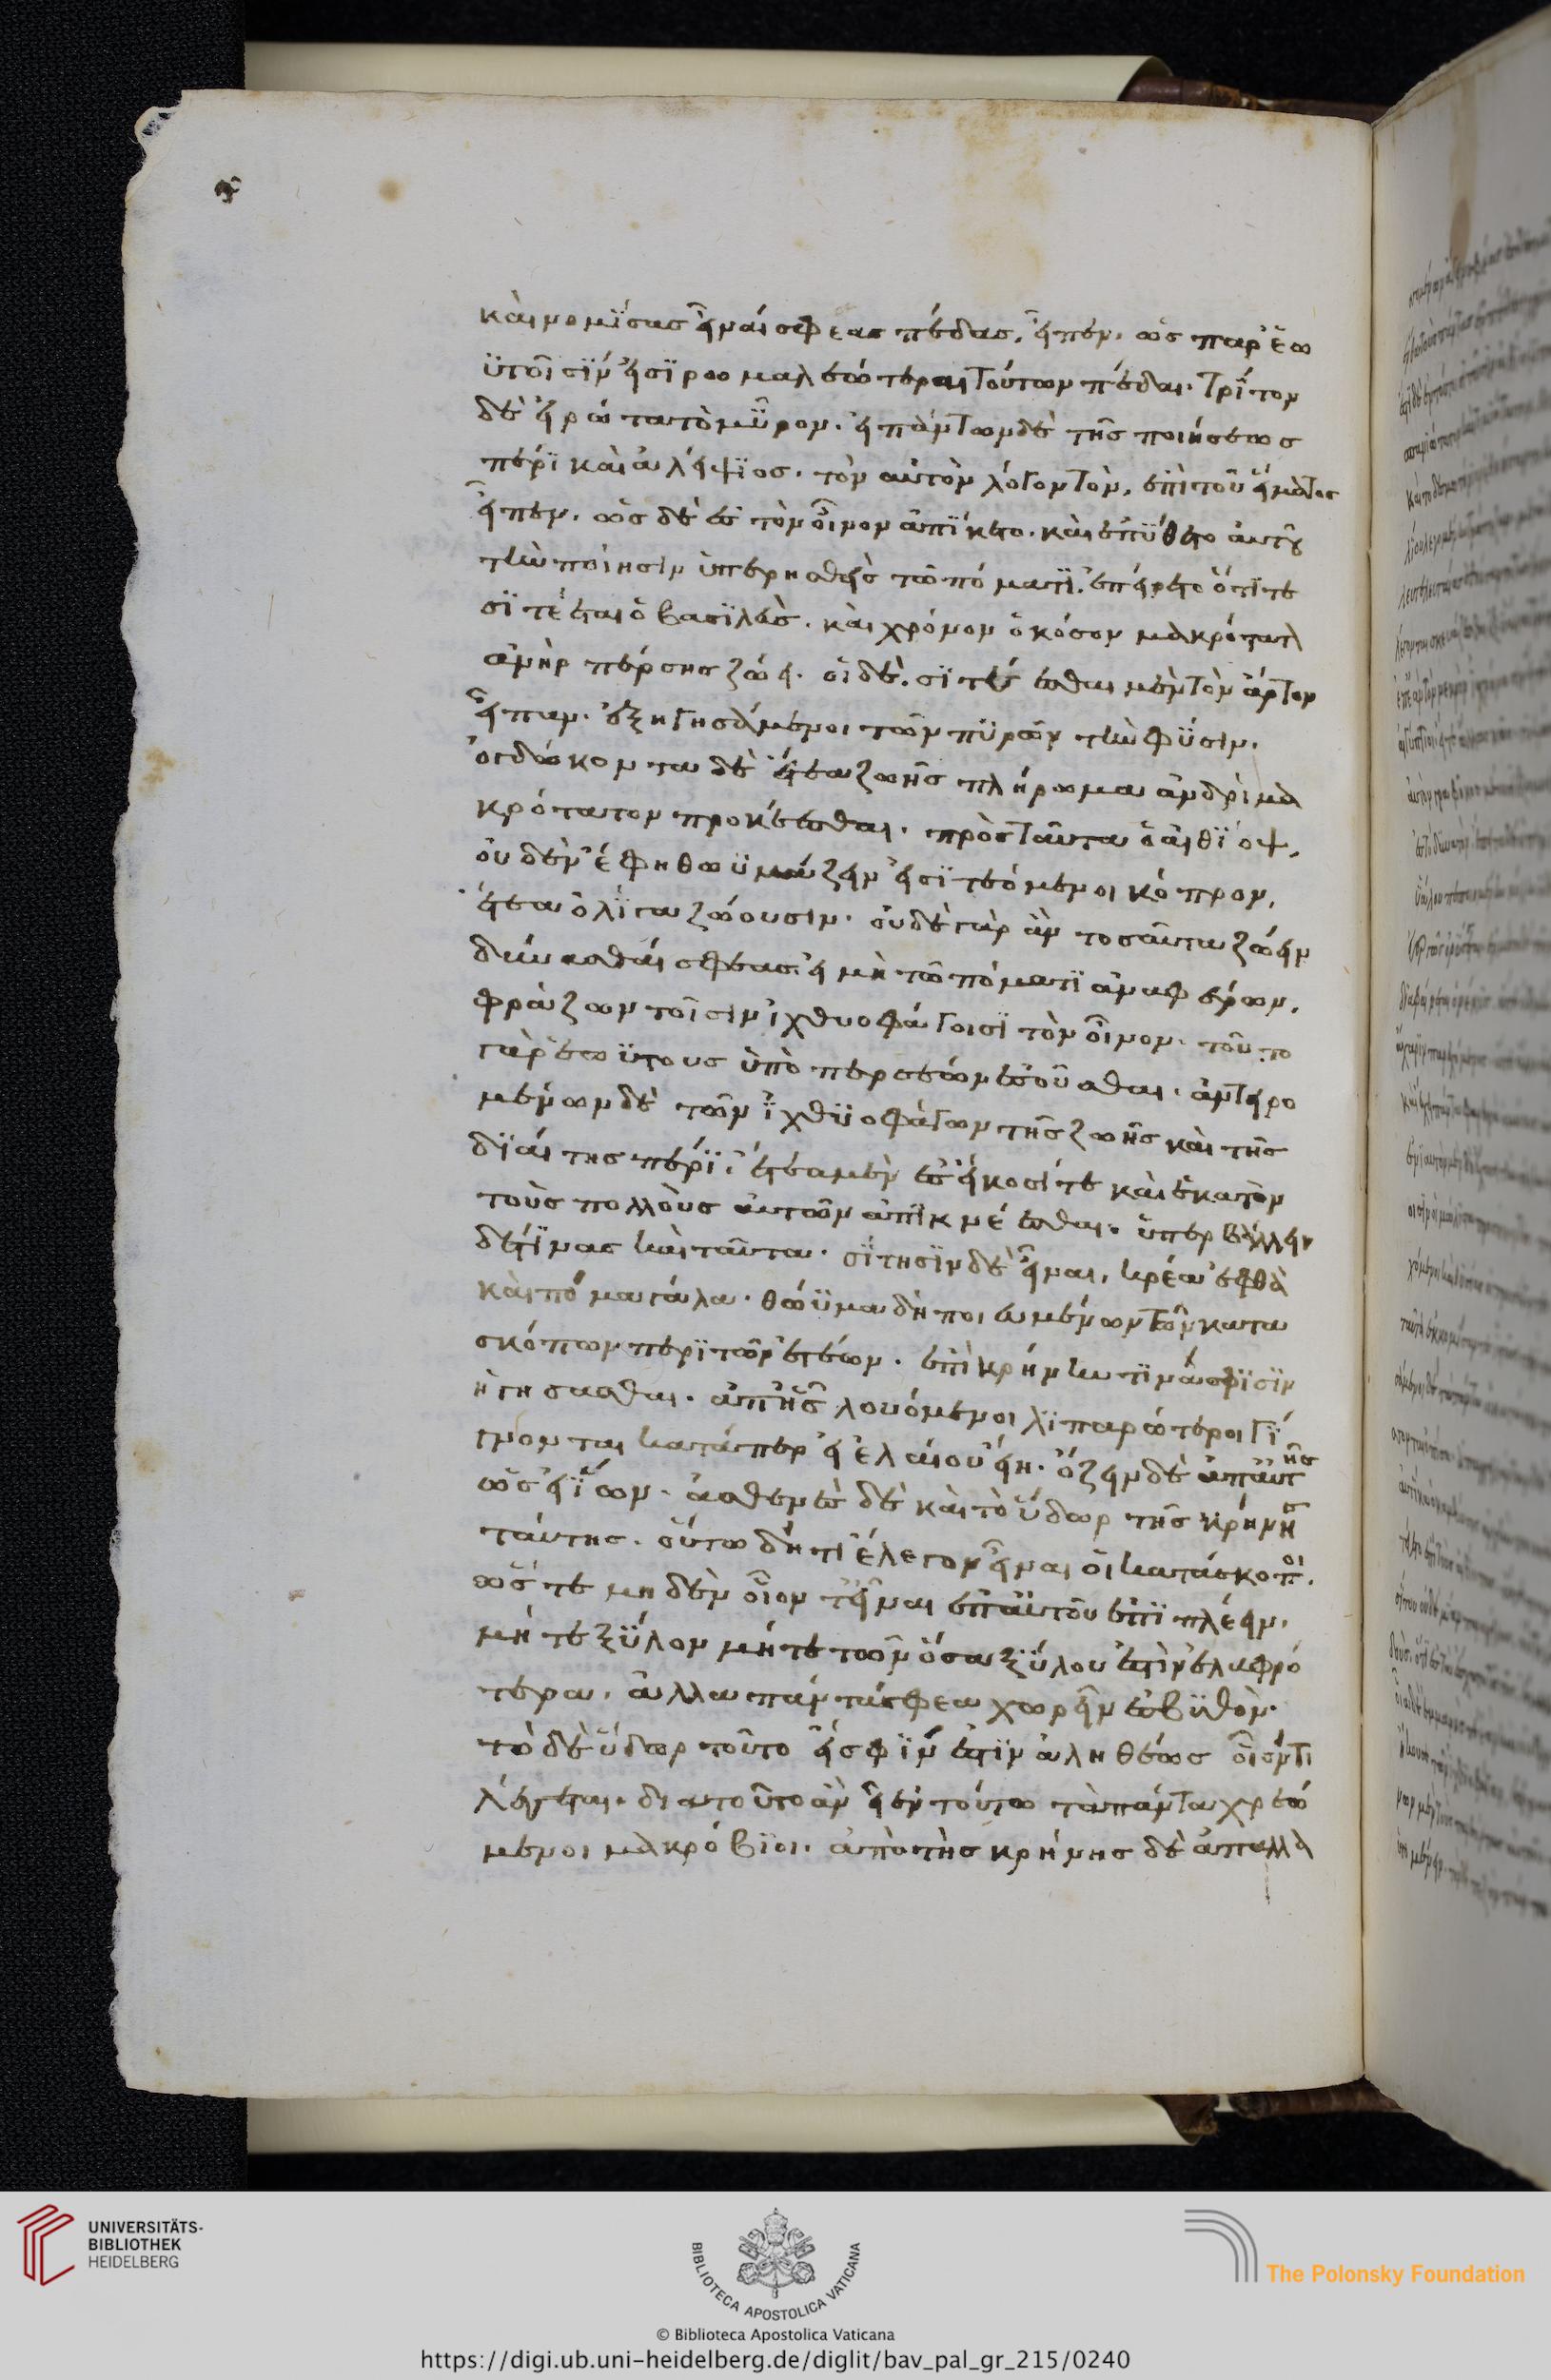 καὶ νομΐσας εἶναί σφεας πέδας, εἶπεν, ὡς παρ' ἑω
ϋτοῖσίν εἰσϊ ῥωμαλεώτεραι τούτων πέδαι. τρίτον
δὲ εἰρώτα τὸ μῦρον. εἰπόντων δὲ τῆς ποιήσεως
πέρϊ καὶ ἀλείψϊος. τὸν αὐτὸν λόγον τὸν, ἐπὶ τοῦ εἵματος
εἶπεν. ὡς δὲ ἐς τὸν οἶνον ἀπΐκετο. καὶ ἐπΰθετο αὐτοῦ
τὴν ποίησιν ὑπερησθεὶς τῶ πόματϊ. ἐπείρετο ὅτϊ τε
σϊτέεται ὁ βασϊλεὺς. καὶ χρόνον ὁκόσον μακρότατα
ἀνὴρ πέρσης ζώει. οἱ δὲ. σϊτέεσθαι μὲν τὸν ἄρτον
εἶπαν. ἐξηγησάμενοι τῶν πϋρῶν τὴν φΰσιν.
ὀγδώκοντα δὲ ἔτεα ζωῆς πλήρωμα ἀνδρὶ μα
κρότατον προκέεσθαι. πρὸς ταῦτα ὁ αἰθΐοψ,
οὐδὲν ἔφη θωϋμάζειν εἰ σϊτεόμενοι κόπρον,
ἔτεα ὀλΐγα ζώουσιν. οὐδὲ γὰρ ἂν τοσαῦτα ζώειν
δύνασθαί σφεας. εἰ μὴ τῶ πόματϊ ἀνέφερον,
φράζων τοῖσιν ἰχθυοφάγοισϊ τὸν οἶνον. τοῦτο
γὰρ ἑωϋτοὺς ὑπὸ περσέων ἑσοῦσθαι. ἀντειρο
μένων δὲ τῶν ἰχθϋοφάγων τῆς ζωῆς καὶ τῆς
δϊαίτης πέρϊ, ἔτεα μὲν ἐς εἴκοσί τε καὶ ἑκατὸν
τοὺς πολλοὺς αὐτῶν ἀπϊκνέεσθαι. ὑπερβάλλειν
δέ τϊνας καὶ ταῦτα. σΐτησϊν δὲ εἶναι, κρέα ἑφθὰ
καὶ πόμα γάλα. θώϋμα δὴ ποιευμένων τῶν κατα
σκόπων περϊ τῶν ἐτέων. ἐπὶ κρήνην τϊνά σφϊσϊν
ἡγήσασθαι. ἀπ' ἧς λουόμενοι λϊπαρώτεροι γί
γνονται κατάπερ εἰ ἐλαίου εἴη. ὄζειν δὲ ἀπ' αὐτῆς
ὡς εἰ ΐων. ἀσθενὲς δὲ καὶ τὸ ὕδωρ τῆς κρήνης
ταύτης. οὕτω δή τι ἔλεγον εἶναι οἱ κατάσκοποι.
ὥς τε μηδὲν οἷόν τ' εἶναι ἐπ' αὐτοῦ ἐπϊπλέειν.
μή τε ξΰλον μήτε τῶν ὅσα ξΰλου ἐστὶν ἐλαφρό
τερα. ἀλλὰ πάντα σφεα χωρεῖν ἐς βϋθὸν.
τὸ δὲ ὕδωρ τοῦτο εἴ σφΐν ἐστϊν ἀληθέως οἷόν τι
λέγεται. διὰ τοῦτο ἂν εἶεν τούτω τὰ πάντα χρεώ
μενοι μακρόβϊοι. ἀπὸ τῆς κρήνης δὲ ἀπαλλα
UNIVERSITÄTS-
BIBLIOTHEK
HEIDELBERG
BIBLIOTECA APOSTOLICA VATICANA
The Polonsky Foundation
© Biblioteca Apostolica Vaticana
https://digi.ub.uni-heidelberg.de/diglit/bav_pal_gr_215/0240